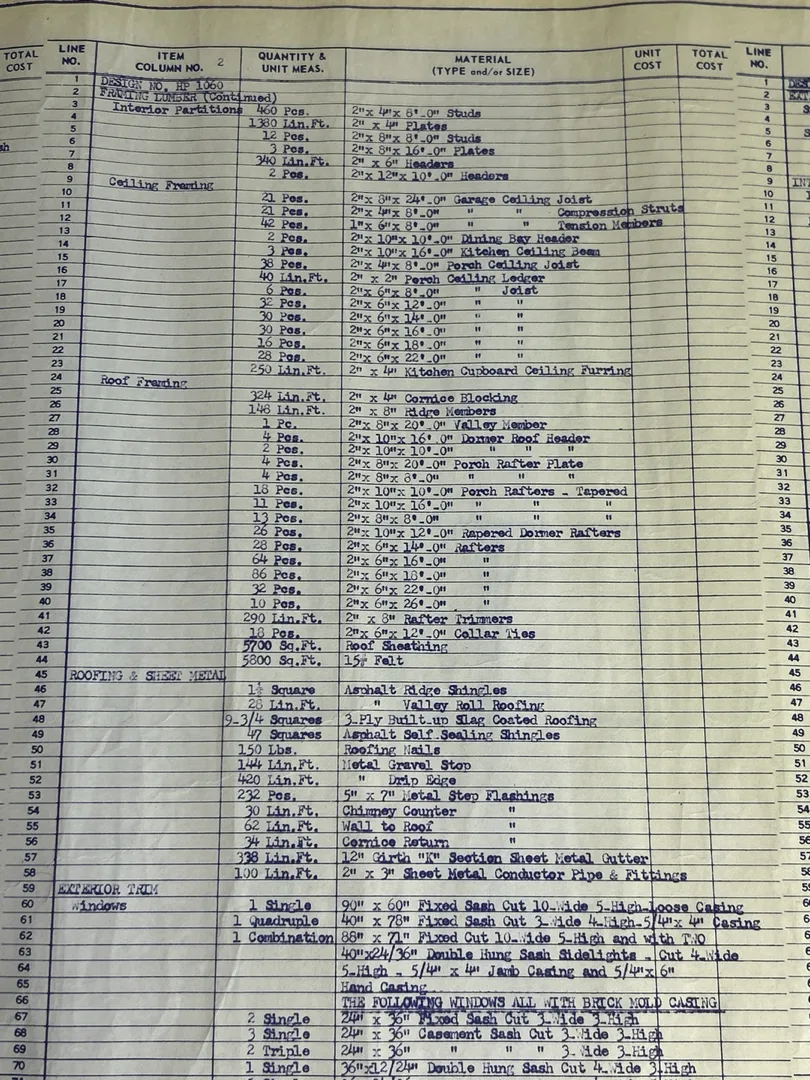 TOTAL COST
LINE NO.
ITEM COLUMN NO. 2
QUANTITY & UNIT MEAS.
MATERIAL (TYPE and/or SIZE)
UNIT COST
TOTAL COST
LINE NO.
1 DESIGN NO. HP 1060
2 FRAMING LUMBER (Continued)
3 Interior Partitions 460 Pcs. 2"x 4"x 8'-0" Studs
4 1380 Lin.Ft. 2" x 4" Plates
5 12 Pcs. 2"x 8"x 8'-0" Studs
6 3 Pcs. 2"x 8"x 16'-0" Plates
7 340 Lin.Ft. 2" x 6" Headers
8 2 Pcs. 2"x 12"x 10'-0" Headers
9 Ceiling Framing
10 21 Pcs. 2"x 8"x 24'-0" Garage Ceiling Joist
11 21 Pcs. 2"x 4"x 8'-0" " " Compression Struts
12 42 Pcs. 1"x 6"x 8'-0" " " Tension Members
13 2 Pcs. 2"x 10"x 10'-0" Dining Bay Header
14 3 Pcs. 2"x 10"x 16'-0" Kitchen Ceiling Beam
15 38 Pcs. 2"x 4"x 8'-0" Porch Ceiling Joist
16 40 Lin.Ft. 2" x 2" Porch Ceiling Ledger
17 6 Pcs. 2"x 6"x 8'-0" " Joist
18 32 Pcs. 2"x 6"x 12'-0" " "
19 30 Pcs. 2"x 6"x 14'-0" " "
20 30 Pcs. 2"x 6"x 16'-0" " "
21 16 Pcs. 2"x 6"x 18'-0" " "
22 28 Pcs. 2"x 6"x 22'-0" " "
23 250 Lin.Ft. 2" x 4" Kitchen Cupboard Ceiling Furring
24 Roof Framing
25 324 Lin.Ft. 2" x 4" Cornice Blocking
26 146 Lin.Ft. 2" x 8" Ridge Members
27 1 Pc. 2"x 8"x 20'-0" Valley Member
28 4 Pcs. 2"x 10"x 16'-0" Dormer Roof Header
29 2 Pcs. 2"x 10"x 10'-0" " " "
30 4 Pcs. 2"x 8"x 20'-0" Porch Rafter Plate
31 4 Pcs. 2"x 8"x 8'-0" " " "
32 18 Pcs. 2"x 10"x 10'-0" Porch Rafters - Tapered
33 11 Pcs. 2"x 10"x 16'-0" " " "
34 13 Pcs. 2"x 8"x 8'-0" " " "
35 26 Pcs. 2"x 10"x 12'-0" Rapered Dormer Rafters
36 28 Pcs. 2"x 6"x 14'-0" Rafters
37 64 Pcs. 2"x 6"x 16'-0" "
38 86 Pcs. 2"x 6"x 18'-0" "
39 32 Pcs. 2"x 6"x 22'-0" "
40 10 Pcs. 2"x 6"x 26'-0" "
41 290 Lin.Ft. 2" x 8" Rafter Trimmers
42 18 Pcs. 2"x 6"x 12'-0" Collar Ties
43 5700 Sq.Ft. Roof Sheathing
44 5800 Sq.Ft. 15# Felt
45 ROOFING & SHEET METAL
46 1½ Square Asphalt Ridge Shingles
47 28 Lin.Ft. " Valley Roll Roofing
48 9-3/4 Squares 3-Ply Built-up Slag Coated Roofing
49 47 Squares Asphalt Self-Sealing Shingles
50 150 Lbs. Roofing Nails
51 144 Lin.Ft. Metal Gravel Stop
52 420 Lin.Ft. " Drip Edge
53 232 Pcs. 5" x 7" Metal Step Flashings
54 30 Lin.Ft. Chimney Counter "
55 62 Lin.Ft. Wall to Roof "
56 34 Lin.Ft. Cornice Return "
57 338 Lin.Ft. 12" Girth "K" Section Sheet Metal Gutter
58 100 Lin.Ft. 2" x 3" Sheet Metal Conductor Pipe & Fittings
59 EXTERIOR TRIM
60 Windows 1 Single 90" x 60" Fixed Sash Cut 10-Wide 5-High-Loose Casing
61 1 Quadruple 40" x 78" Fixed Sash Cut 3-Wide 4-High-5/4"x 4" Casing
62 1 Combination 88" x 71" Fixed Cut 10-Wide 5-High and with TWO
63 40"x24/36" Double Hung Sash Sidelights - Cut 4-Wide
64 5-High - 5/4" x 4" Jamb Casing and 5/4"x 6"
65 Hand Casing
66 THE FOLLOWING WINDOWS ALL WITH BRICK MOLD CASING
67 2 Single 24" x 36" Fixed Sash Cut 3-Wide 3-High
68 3 Single 24" x 36" Casement Sash Cut 3-Wide 3-High
69 2 Triple 24" x 36" " " " 3-Wide 3-High
70 1 Single 36"x12/24" Double Hung Sash Cut 4-Wide 3-High